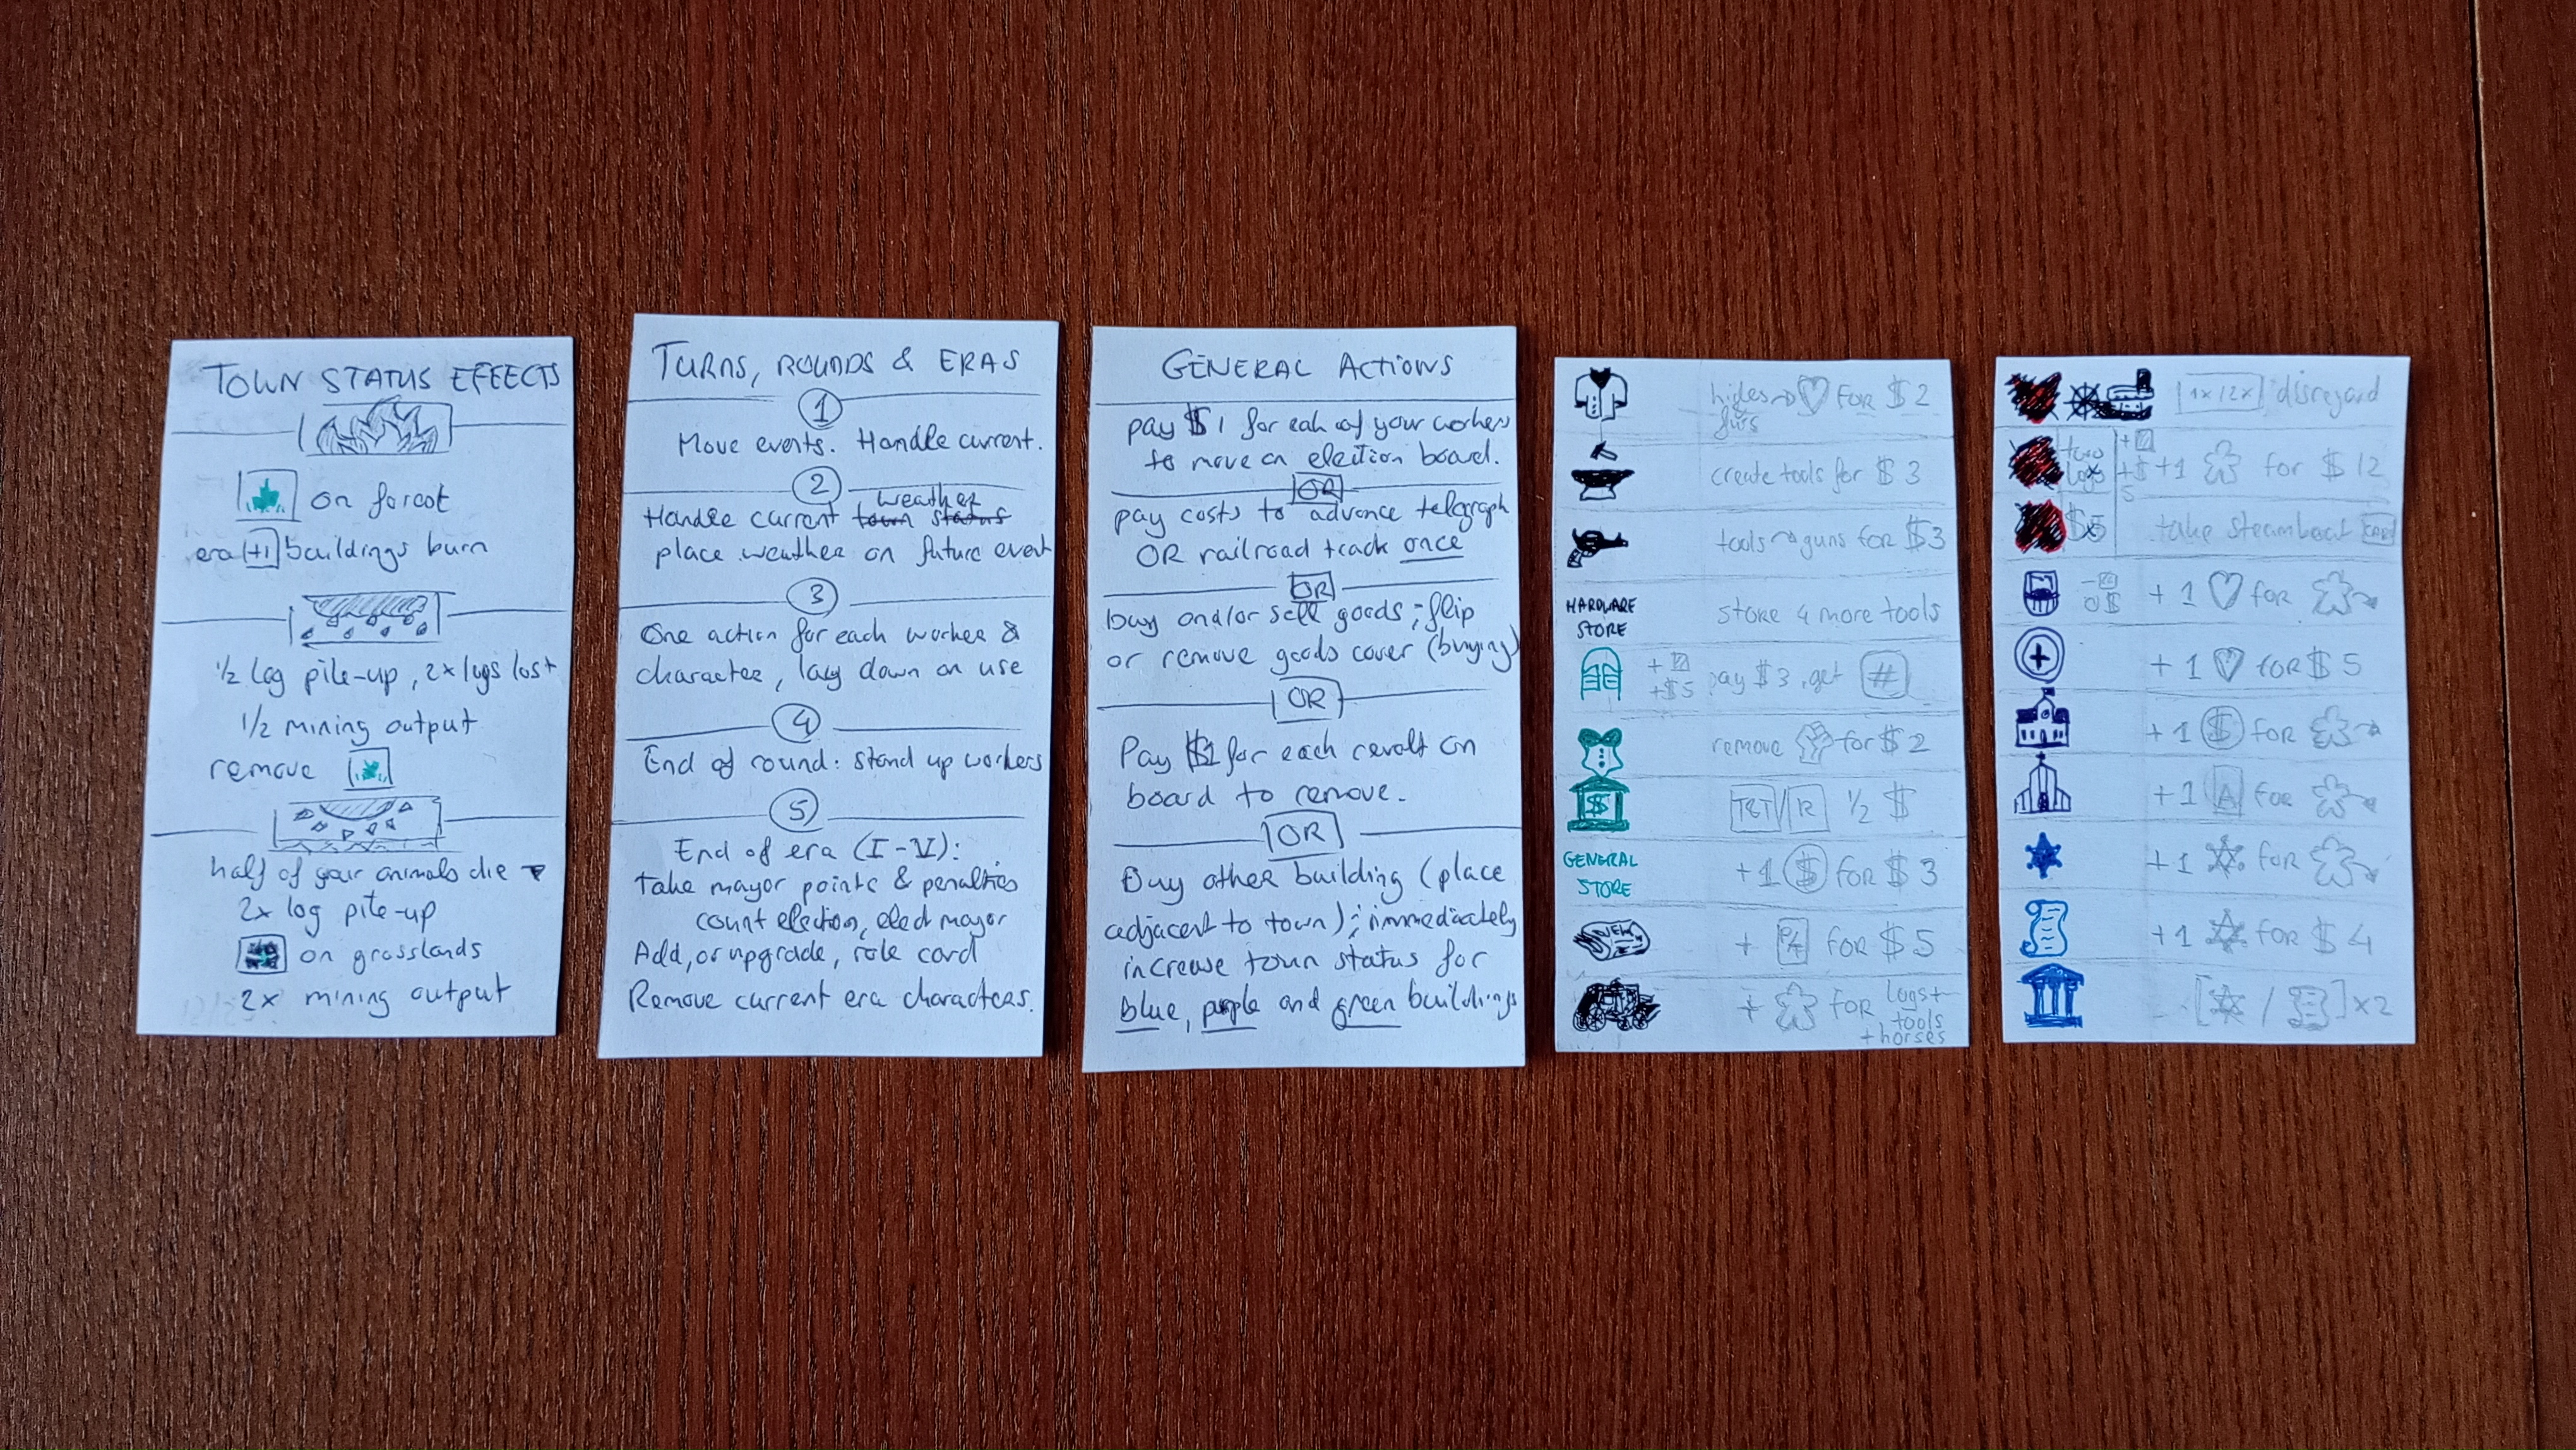 TOWN STATUS EFFECTS
on forest
era +1 buildings burn
1/2 log pile-up, 2x logs lost
1/2 mining output
remove
half of your animals die
2x log pile-up
on grasslands
2x mining output
TURNS, ROUNDS & ERAS
1
Move events. Handle current.
2
weather
Handle current town status
place weather on future event
3
One action for each worker &
character, lay down on use
4
End of round: stand up workers
5
End of era (I-V):
Take mayor points & penalties
count election, elect mayor
Add, or upgrade, role card
Remove current era characters.
GENERAL ACTIONS
pay $1 for eah of your workers
to move on election board.
OR
pay costs to advance telegraph
OR railroad track once
OR
buy and/or sell goods; flip
or remove goods cover (buying)
OR
Pay $1 for each revolt on
board to remove.
OR
Buy other building (place
adjacent to town); immediately
increase town status for
blue, purple and green buildings
hides → FOR $2
&
furs
create tools for $3
tools → guns for $3
HARDWARE
STORE
store 4 more tools
+
+$5
pay $3, get #
remove for $2
$
TGT/R 1/2 $
GENERAL
STORE
+1 $ FOR $3
NEWS
+ FOR $5
+ FOR logs+
tools
+horses
1x/2x disregard
logs
+
+$
5
+1 for $12
$5
take steamboat CARD
0$
+1 for
+1 for $5
+1 $ for
+1 A for
+1 for
+1 for $4
[ / ]x2